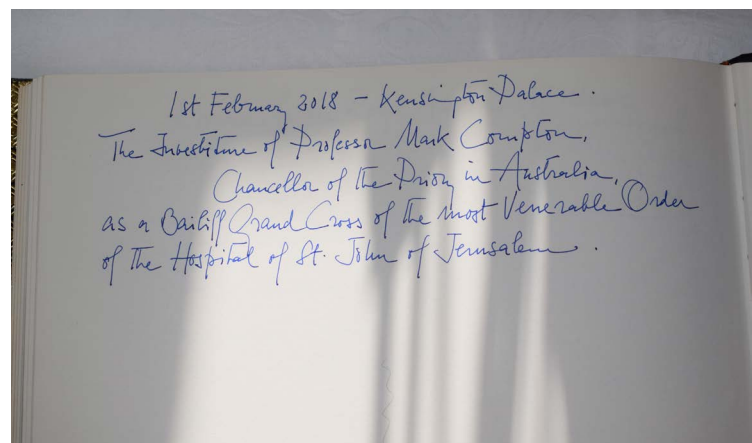 1st February 2018 - Kensington Palace.
The Investiture of Professor Mark Compton,
Chancellor of the Priory in Australia,
as a Bailiff Grand Cross of the most Venerable Order
of the Hospital of St. John of Jerusalem.